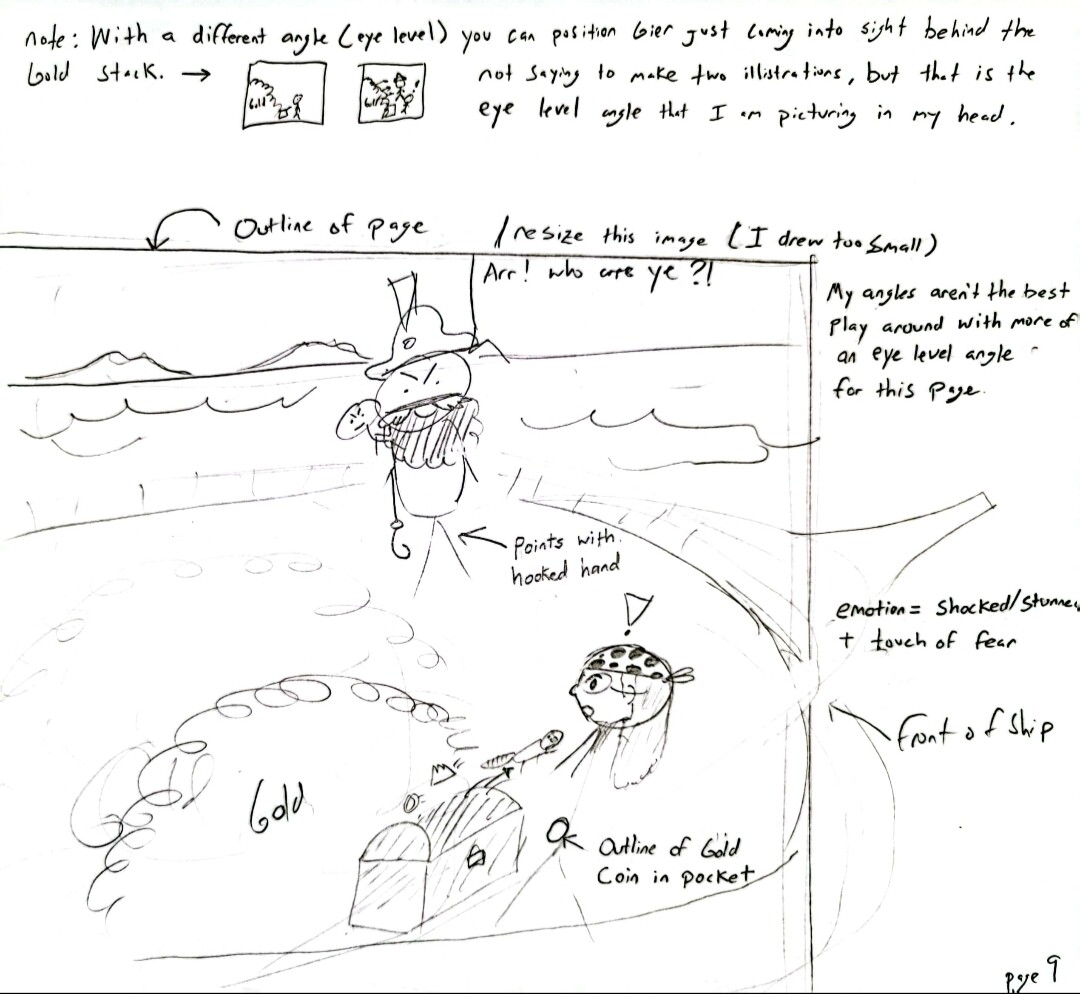 note: With a different angle (eye level) you can position Gier just coming into sight behind the
Gold stack. → not saying to make two illistrations, but that is the
Gold
Gold
eye level angle that I am picturing in my head.
Outline of page
/ resize this image (I drew too small)
Arr! who are ye?!
My angles aren't the best
Play around with more of
an eye level angle
for this page.
Points with
hooked hand
!
emotion = Shocked/Stunned
+ touch of fear
Front of Ship
Gold
Outline of Gold
Coin in pocket
page 9